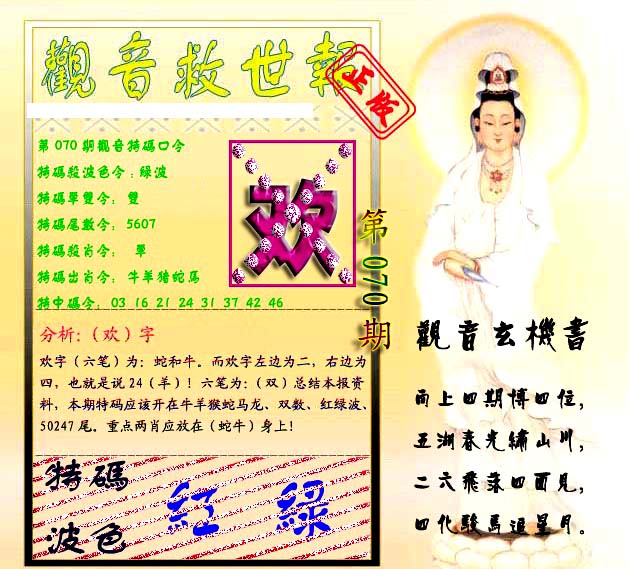 觀音救世報
正版
第070期觀音特碼口令
特碼殺波色令：綠波
特碼單雙令： 雙
特碼尾數令： 5607
特碼殺肖令： 單
特碼出肖令： 牛羊猪蛇馬
特中碼令： 03 16 21 24 31 37 42 46
欢
第070期
分析:（欢）字
欢字（六笔）为：蛇和牛。而欢字左边为二，右边为
四，也就是说24（羊）！六笔为：（双）总结本报资
料，本期特码应该开在牛羊猴蛇马龙、双数、红绿波、
50247尾。重点两肖应放在（蛇牛）身上！
特碼
波色
紅 綠
觀音玄機書
雨上四期博四位，
五湖春光繡山川，
二六飛落四面見，
四化駿馬追星月。